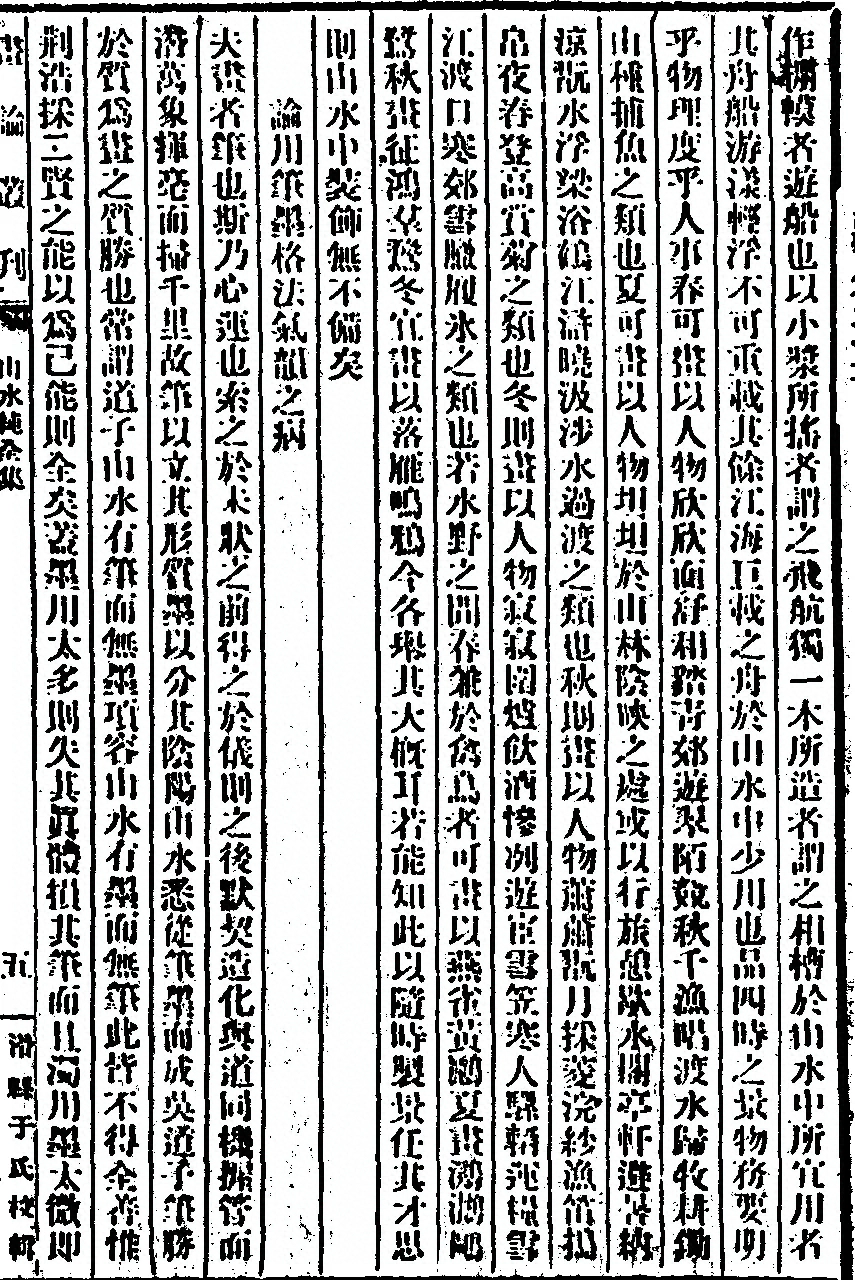 作棚幙者遊船也以小槳所搖者謂之飛航獨一木所造者謂之相槽於山水中所宜用者
其舟船游漾輕浮不可重載其餘江海巨載之舟於山水中少用也品四時之景物務要明
乎物理度乎人事春可畫以人物欣欣而舒和踏青郊遊翠陌競秋千漁唱渡水歸牧耕鋤
山種捕魚之類也夏可畫以人物坦坦於山林陰映之處或以行旅憩歇水閣亭軒避暑納
涼翫水浮梁浴鶴江滸曉汲涉水過渡之類也秋則畫以人物蕭蕭翫月採菱浣紗漁笛搗
帛夜舂登高賞菊之類也冬則畫以人物寂寂圍爐飲酒慘冽遊宦雪笠寒人騾轎運糧雪
江渡口寒郊雪臘履氷之類也若水野之間春雖於禽鳥者可畫以燕雀黃鸝夏畫鸂鶒鷗
鷺秋畫征鴻羣鷺冬宜畫以落雁鳴鴉今各舉其大概耳若能知此以隨時製景任其才思
則山水中裝飾無不備矣
論用筆墨格法氣韻之病
夫畫者筆也斯乃心運也索之於未狀之前得之於儀則之後默契造化與道同機握管而
潛萬象揮毫而掃千里故筆以立其形質墨以分其陰陽山水悉從筆墨而成吳道子筆勝
於質爲畫之質勝也常謂道子山水有筆而無墨項容山水有墨而無筆此皆不得全善惟
荆浩採二賢之能以爲己能則全矣葢墨用太多則失其眞體損其筆而且濁用墨太微即
畫論叢刊
山水純全集
五
沿縣于氏校輯